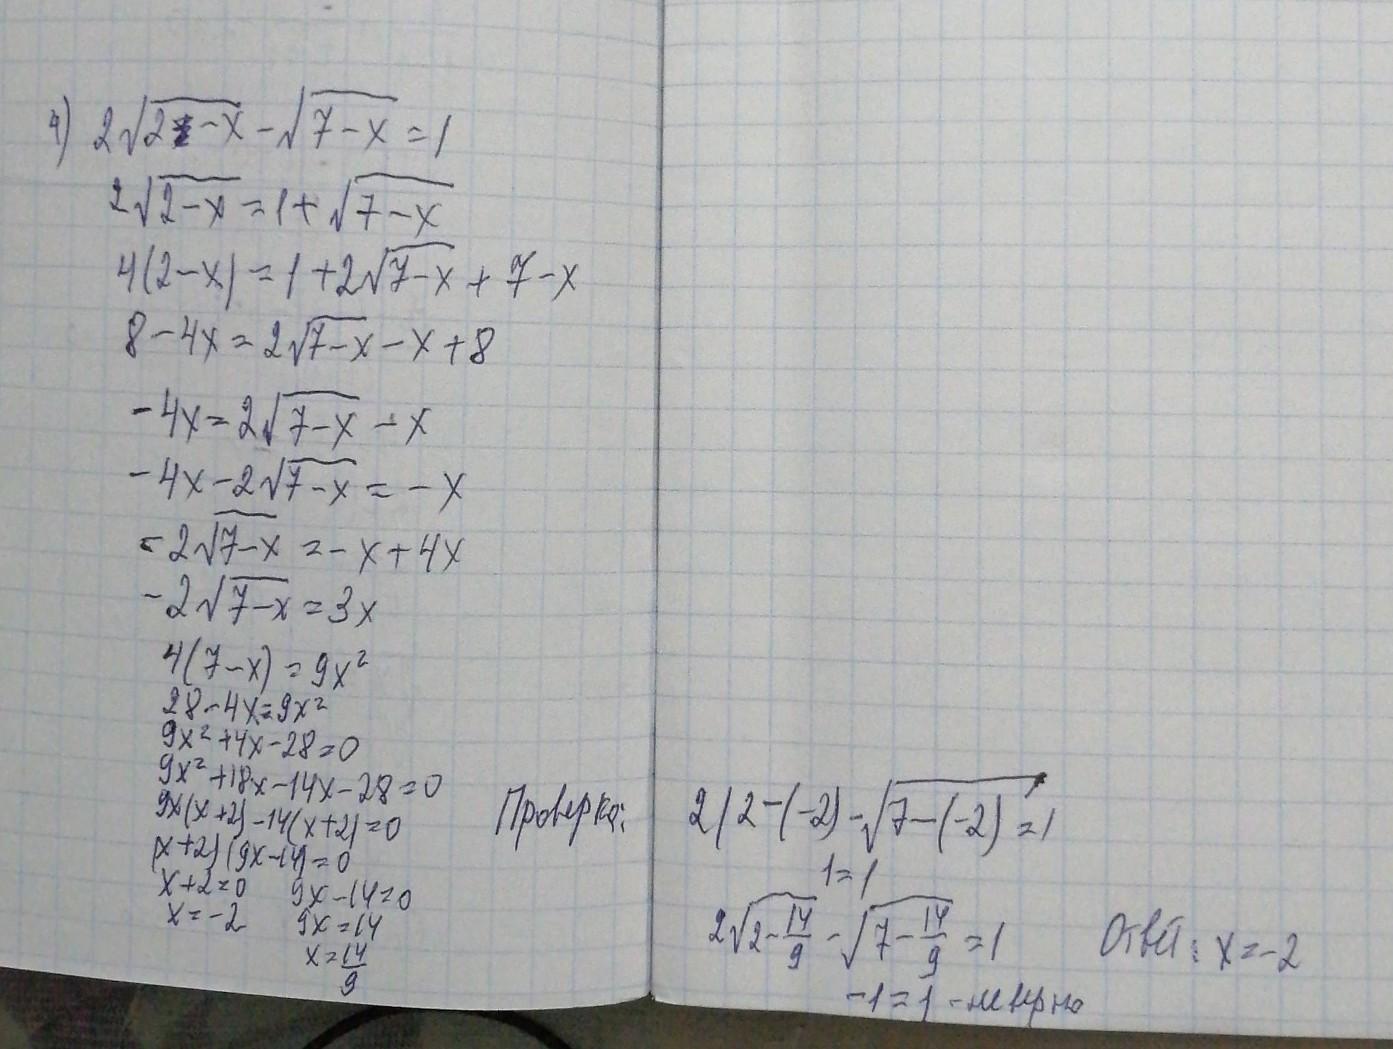 4) 2√(2-x) - √(7-x) = 1
2√(2-x) = 1 + √(7-x)
4(2-x) = 1 + 2√(7-x) + 7 - x
8 - 4x = 2√(7-x) - x + 8
-4x = 2√(7-x) - x
-4x - 2√(7-x) = -x
-2√(7-x) = -x + 4x
-2√(7-x) = 3x
4(7-x) = 9x²
28 - 4x = 9x²
9x² + 4x - 28 = 0
9x² + 18x - 14x - 28 = 0
9x(x+2) - 14(x+2) = 0
(x+2)(9x-14) = 0
x+2=0 9x-14=0
x=-2 9x=14
x=14/9
Проверка: 2√(2-(-2)) - √(7-(-2)) = 1
1=1
2√(2-14/9) - √(7-14/9) = 1
-1=1 - неверно
Ответ: x=-2